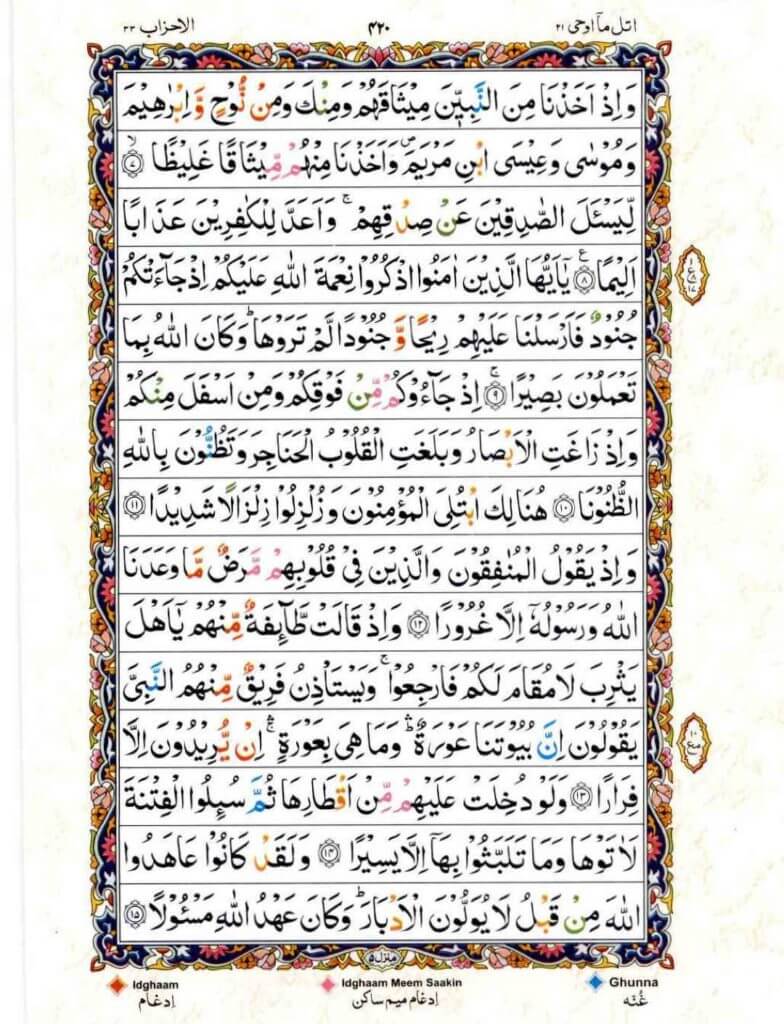 اتل مآ اوحی ۲۱
۴۲۰
الاحزاب ۳۳
وَاِذْ اَخَذْنَا مِنَ النَّبِیّٖنَ مِیْثَاقَهُمْ وَمِنْكَ وَمِنْ نُّوْحٍ وَّاِبْرٰهِیْمَ
وَمُوْسٰی وَعِیْسَی ابْنِ مَرْیَمَ ۪ وَاَخَذْنَا مِنْهُمْ مِّیْثَاقًا غَلِیْظًا ۙ﴿۷﴾
لِّیَسْـَٔلَ الصّٰدِقِیْنَ عَنْ صِدْقِهِمْ ۚ وَاَعَدَّ لِلْكٰفِرِیْنَ عَذَابًا
اَلِیْمًا ﴿۸﴾ ع یٰۤاَیُّهَا الَّذِیْنَ اٰمَنُوا اذْكُرُوْا نِعْمَةَ اللّٰهِ عَلَیْكُمْ اِذْ جَآءَتْكُمْ
جُنُوْدٌ فَاَرْسَلْنَا عَلَیْهِمْ رِیْحًا وَّجُنُوْدًا لَّمْ تَرَوْهَا ؕ وَكَانَ اللّٰهُ بِمَا
تَعْمَلُوْنَ بَصِیْرًا ۚ﴿۹﴾ اِذْ جَآءُوْكُمْ مِّنْ فَوْقِكُمْ وَمِنْ اَسْفَلَ مِنْكُمْ
وَاِذْ زَاغَتِ الْاَبْصَارُ وَبَلَغَتِ الْقُلُوْبُ الْحَنَاجِرَ وَتَظُنُّوْنَ بِاللّٰهِ
الظُّنُوْنَا ﴿۱۰﴾ هُنَالِكَ ابْتُلِیَ الْمُؤْمِنُوْنَ وَزُلْزِلُوْا زِلْزَالًا شَدِیْدًا ﴿۱۱﴾
وَاِذْ یَقُوْلُ الْمُنٰفِقُوْنَ وَالَّذِیْنَ فِیْ قُلُوْبِهِمْ مَّرَضٌ مَّا وَعَدَنَا
اللّٰهُ وَرَسُوْلُهٗۤ اِلَّا غُرُوْرًا ﴿۱۲﴾ وَاِذْ قَالَتْ طَّآئِفَةٌ مِّنْهُمْ یٰۤاَهْلَ
یَثْرِبَ لَا مُقَامَ لَكُمْ فَارْجِعُوْا ۚ وَیَسْتَاْذِنُ فَرِیْقٌ مِّنْهُمُ النَّبِیَّ
یَقُوْلُوْنَ اِنَّ بُیُوْتَنَا عَوْرَةٌ ؕۛ وَمَا هِیَ بِعَوْرَةٍ ۚۛ اِنْ یُّرِیْدُوْنَ اِلَّا
فِرَارًا ﴿۱۳﴾ وَلَوْ دُخِلَتْ عَلَیْهِمْ مِّنْ اَقْطَارِهَا ثُمَّ سُىِٕلُوا الْفِتْنَةَ
لَاٰتَوْهَا وَمَا تَلَبَّثُوْا بِهَاۤ اِلَّا یَسِیْرًا ﴿۱۴﴾ وَلَقَدْ كَانُوْا عَاهَدُوا
اللّٰهَ مِنْ قَبْلُ لَا یُوَلُّوْنَ الْاَدْبَارَ ؕ وَكَانَ عَهْدُ اللّٰهِ مَسْـُٔوْلًا ﴿۱۵﴾
منزل ۵
Idghaam Idghaam Meem Saakin Ghunna
اِدغَام اِدغَام میم ساکن غُنّه